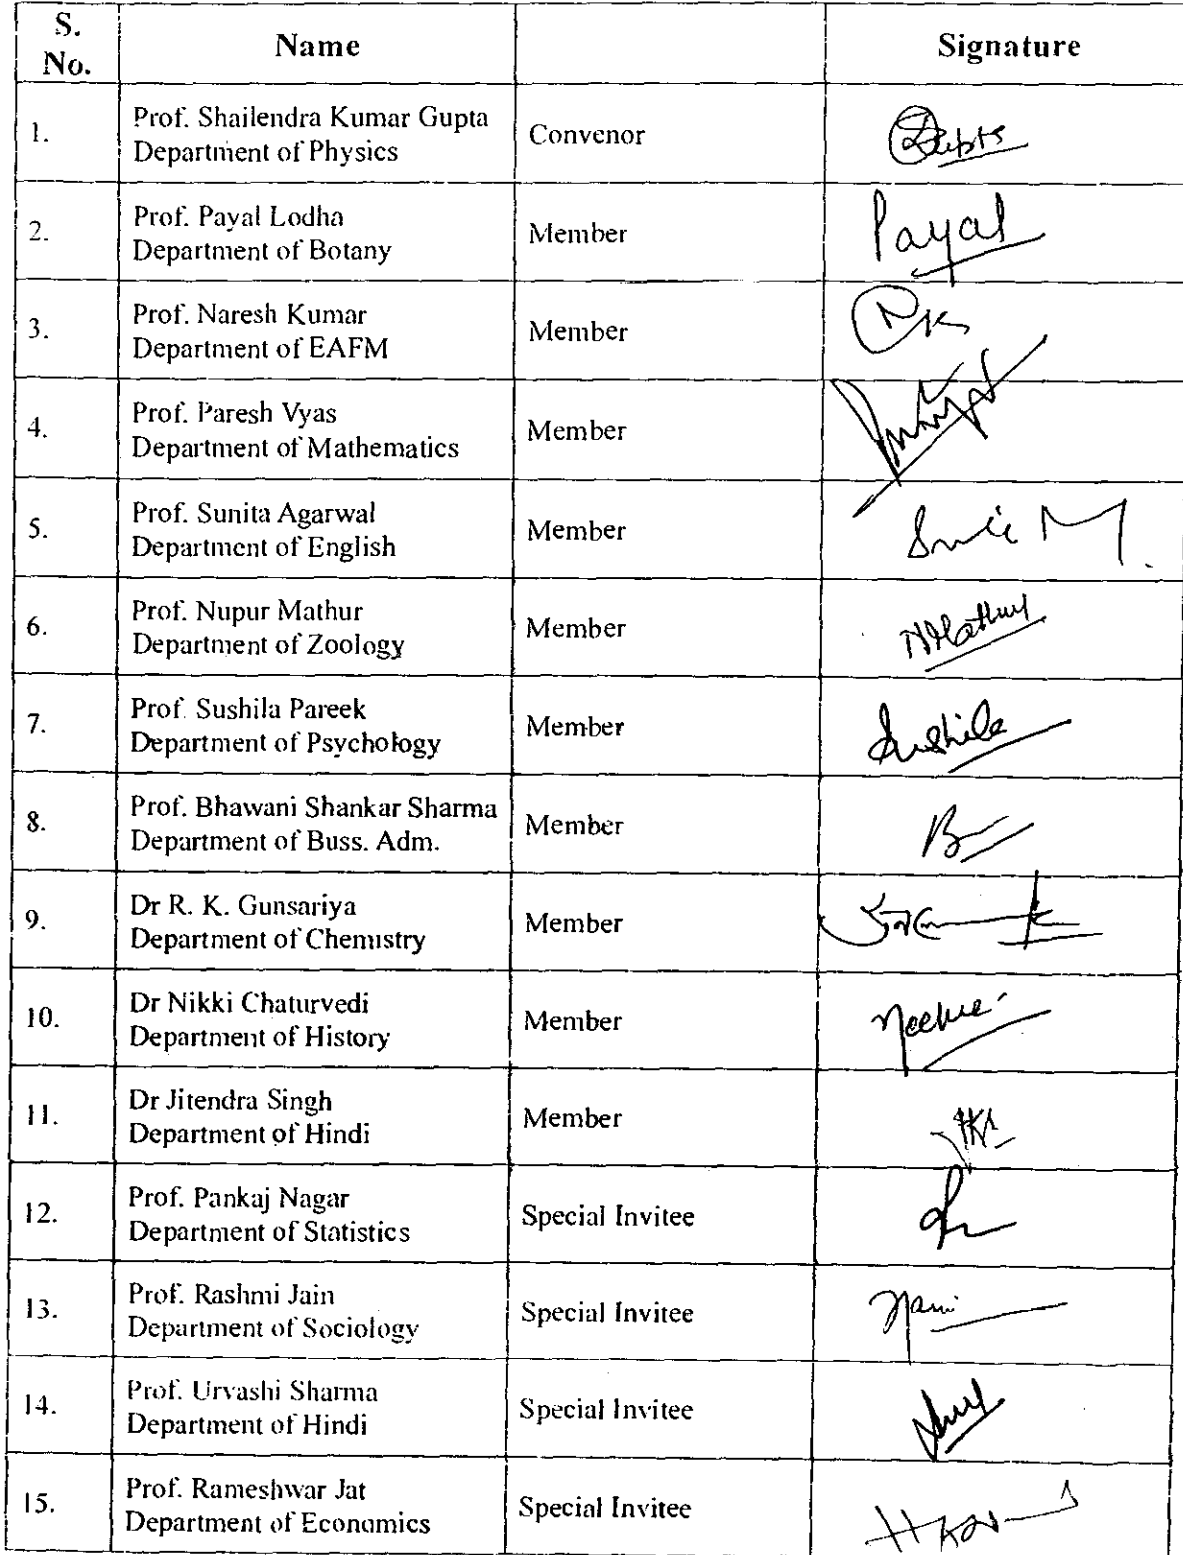 S. No.
Name
Signature
1.
Prof. Shailendra Kumar Gupta
Department of Physics
Convenor
2.
Prof. Payal Lodha
Department of Botany
Member
Payal
3.
Prof. Naresh Kumar
Department of EAFM
Member
NK
4.
Prof. Paresh Vyas
Department of Mathematics
Member
5.
Prof. Sunita Agarwal
Department of English
Member
6.
Prof. Nupur Mathur
Department of Zoology
Member
NMathur
7.
Prof. Sushila Pareek
Department of Psychology
Member
Sushila
8.
Prof. Bhawani Shankar Sharma
Department of Buss. Adm.
Member
9.
Dr R. K. Gunsariya
Department of Chemistry
Member
10.
Dr Nikki Chaturvedi
Department of History
Member
11.
Dr Jitendra Singh
Department of Hindi
Member
12.
Prof. Pankaj Nagar
Department of Statistics
Special Invitee
13.
Prof. Rashmi Jain
Department of Sociology
Special Invitee
14.
Prof. Urvashi Sharma
Department of Hindi
Special Invitee
15.
Prof. Rameshwar Jat
Department of Economics
Special Invitee